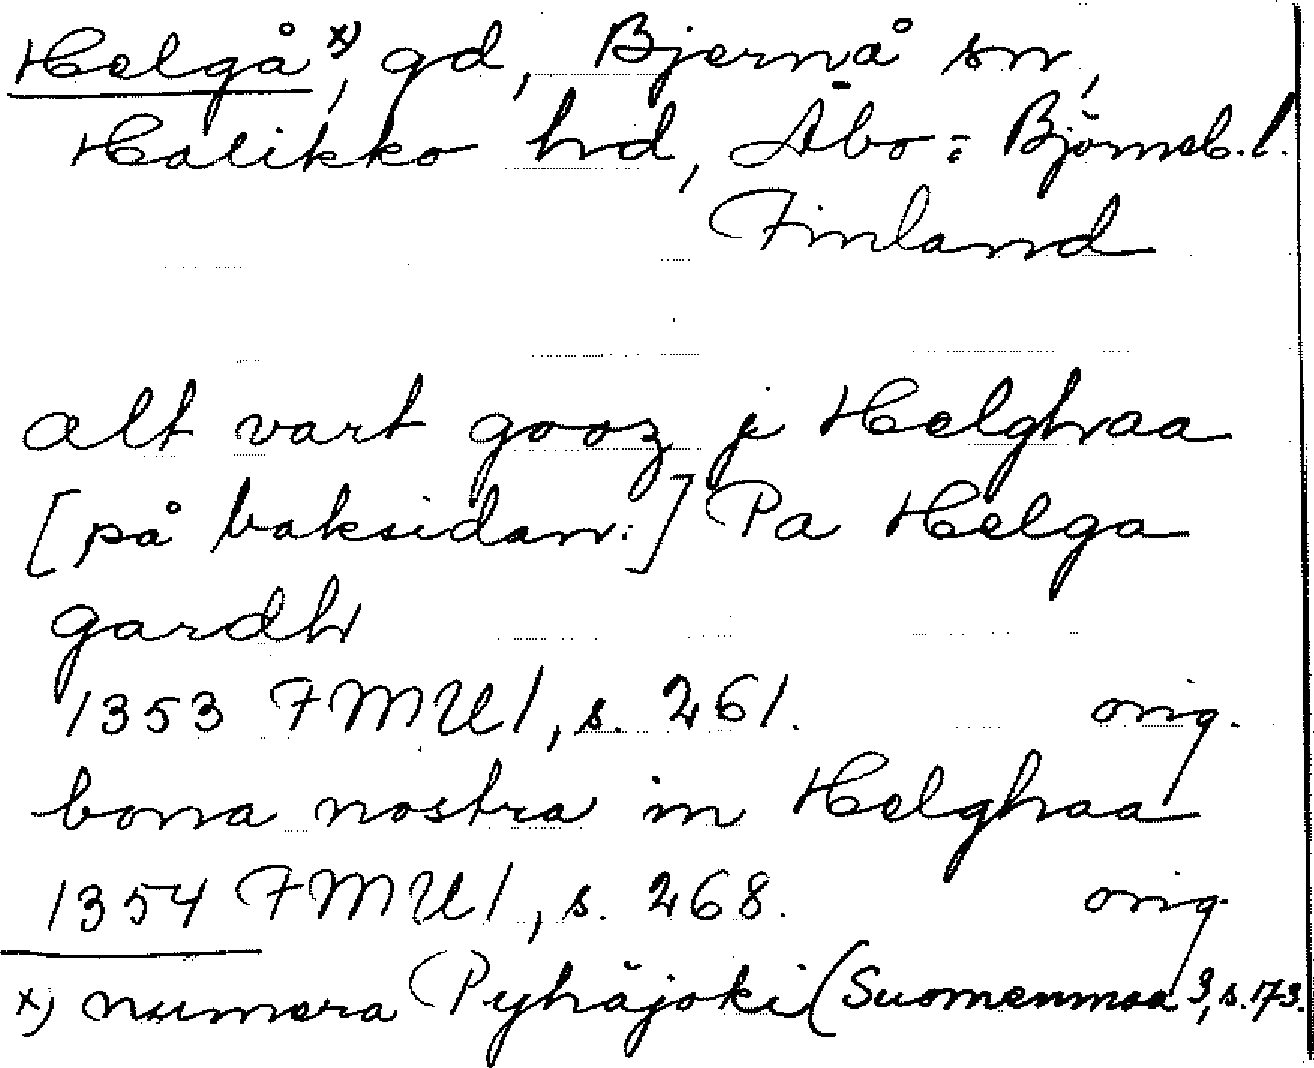 Helgå x), gd, Bjernå sn,
Halikko hd, Åbo-Björneb. l.
Finland
alt vart gooz j Helghaa
[på baksidan:] Pa Helga
gardh
1353 FMU 1, s. 261. orig.
bona nostra in Helghaa
1354 FMU 1, s. 268. orig.
x) numera Pyhäjoki (Suomenmaa 3, s. 173.